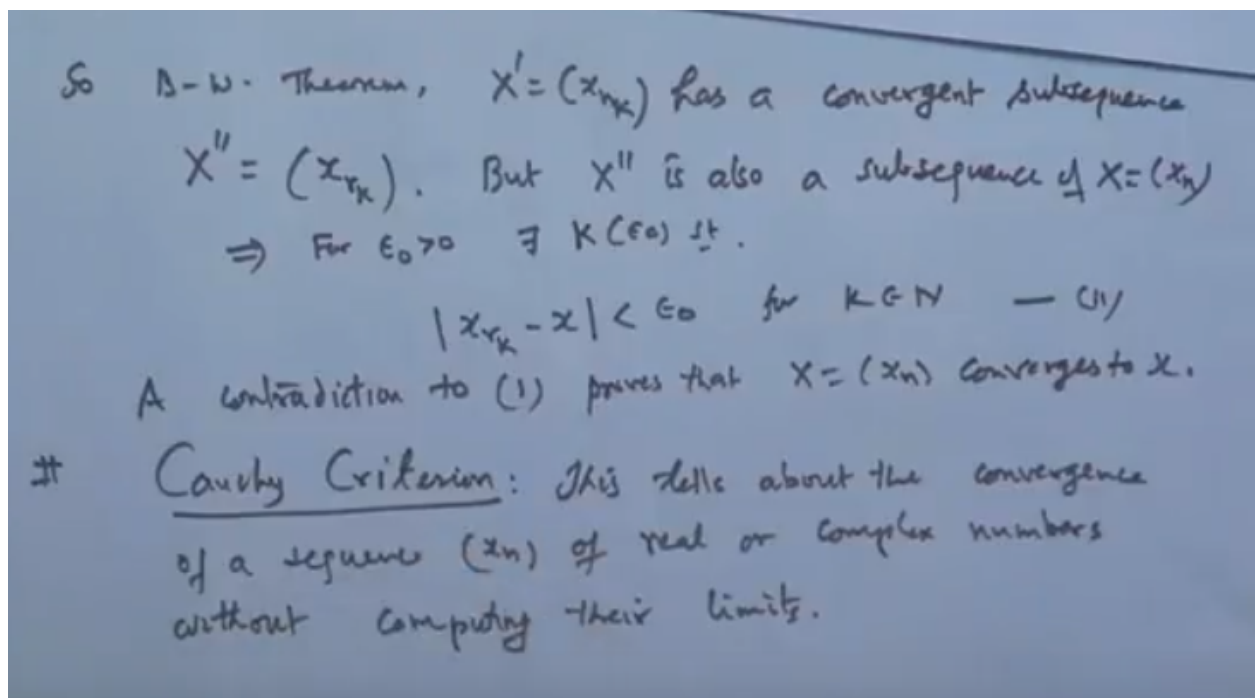 So B-W. Theorem, X' = (x_{n_k}) has a convergent subsequence
X'' = (x_{r_k}). But X'' is also a subsequence of X = (x_n)
⇒ For ε_0 > 0 ∃ K(ε_0) st.
|x_{r_k} - x| < ε_0 for K ∈ N — (11)
A contradiction to (1) proves that X = (x_n) converges to x.
# Cauchy Criterion: This tells about the convergence
of a sequence (x_n) of real or complex numbers
without computing their limits.